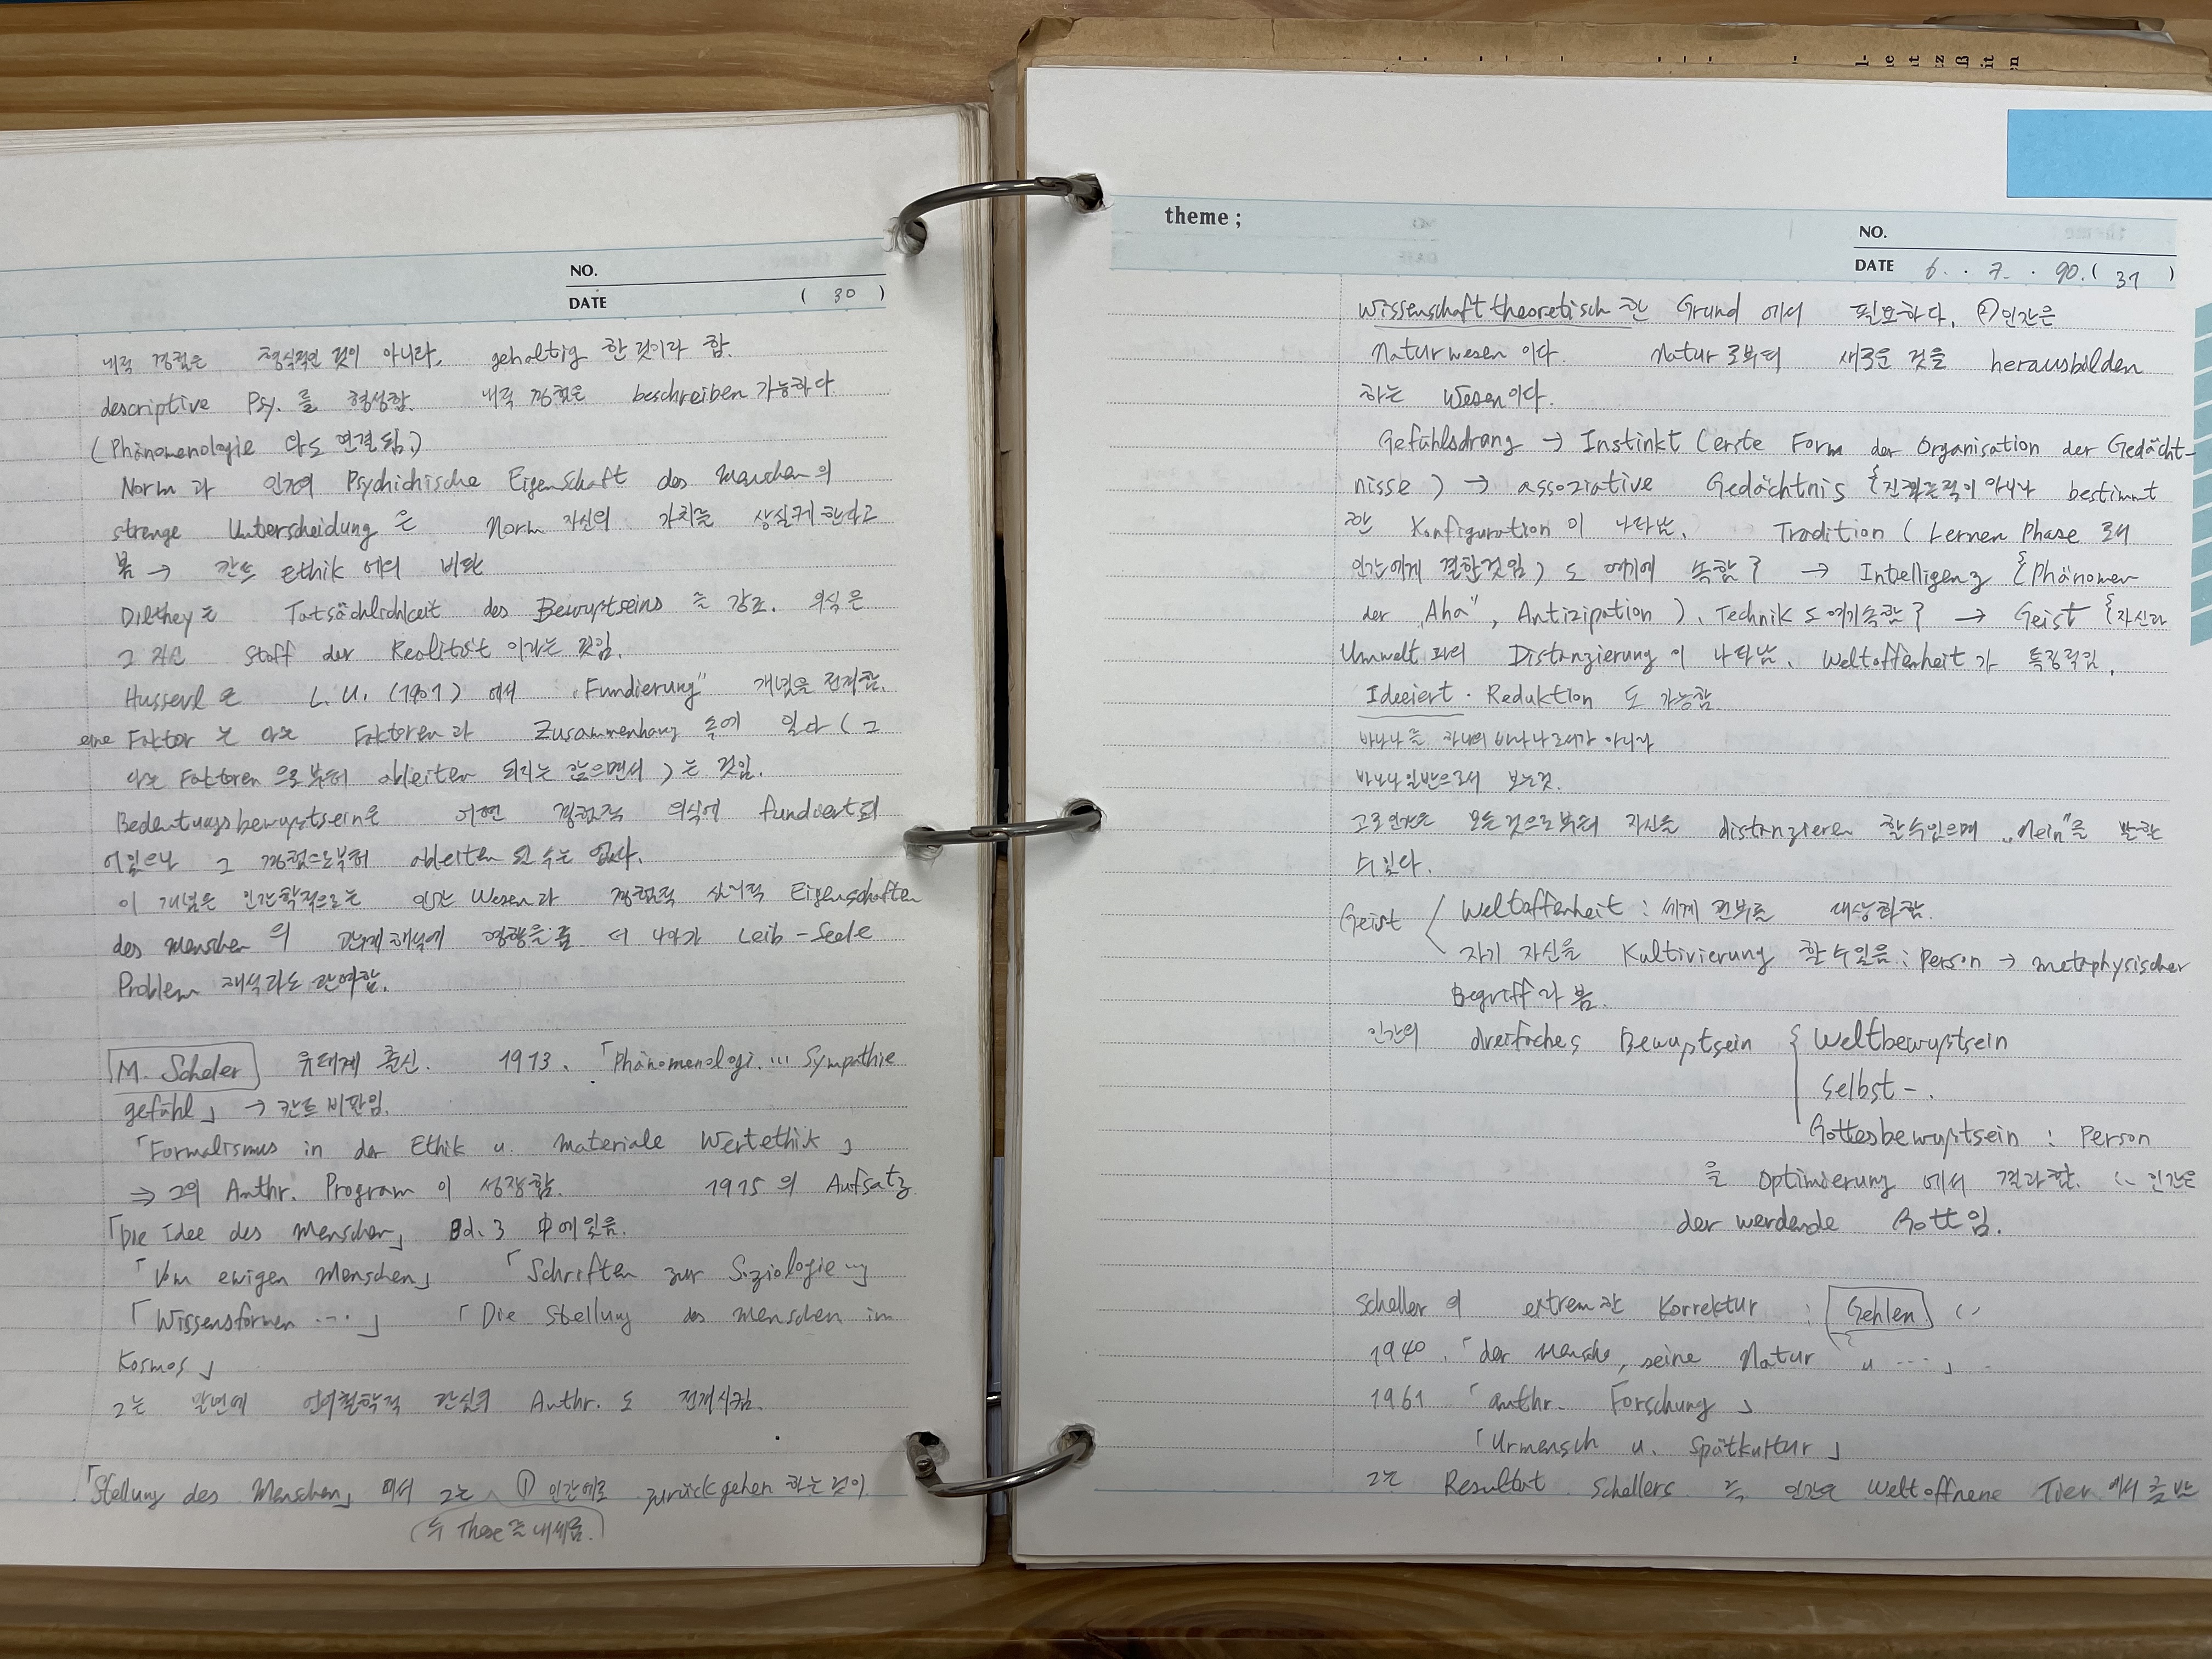 NO.
DATE ( 30 )
내적 경험은 형식적인 것이 아니라, gehaltig 한 것이라 함.
descriptive Psy. 를 형성함. 내적 경험은 beschreiben 가능하다
(Phänomenologie 와도 연결됨.)
Norm 과 인간의 Psychichische Eigenschaft des Menschen 의
strenge Unterscheidung 은 Norm 자신의 가치를 상실케 한다고
봄 → 칸트 Ethik 에의 비판
Dilthey는 Tatsächlichkeit des Bewußtseins 를 강조. 의식은
그 자신 Stoff der Realität 이라는 것임.
Husserl 은 L.U. (1901) 에서 „Fundierung" 개념을 전개함.
eine Faktor 는 다른 Faktoren과 Zusammenhang 속에 있다 (그
다른 Faktoren 으로부터 ableiten 되지는 않으면서) 는 것임.
Bedeutungsbewußtsein은 어떤 경험적 의식에 fundiert되
어있으나 그 경험으로부터 ableiten 될 수는 없다.
이 개념은 인간학적으로는 인간 Wesen과 경험적 심리적 Eigenschaften
des Menschen 의 관계해석에 영향을 줌 더 나아가 Leib-Seele
Problem 해석과도 관여함.
M. Scheler 유태계 출신. 1913. 「Phänomenologi. ... Sympathie
gefühl」 → 칸트 비판임.
「Formalismus in der Ethik u. materiale Wertethik」
⇒ 그의 Anthr. Program 이 성장함. 1915 의 Aufsatz
「Die Idee des Menschen」 Bd. 3 中에 있음.
「Vom ewigen Menschen」 「Schriften zur Soziologie ...」
「Wissensformen ...」 「Die Stellung des Menschen im
Kosmos」
그는 말년에 언어철학적 관심의 Anthr. 도 전개시킴.
「Stellung des Menschen」 에서 그는 ① 인간에로 zurückgehen 하는 것이
(두 These 를 내세움.)
theme ;
NO.
DATE 6. . 7. . 90. ( 31 )
Wissenschafttheoretisch 한 Grund 에서 필요하다. ② 인간은
Naturwesen 이다. Natur 로부터 새로운 것을 herausbilden
하는 Wesen이다.
Gefühlsdrang → Instinkt (erste Form der Organisation der Gedächt-
nisse) → assoziative Gedächtnis { 이 아니나 bestimmt
한 Konfiguration 이 나타남. Tradition (Lernen Phase 로서
인간에게 결한것임) 도 여기에 속함 } → Intelligenz {Phänomen
der „Aha", Antizipation ). Technik 도 여기 속함 } → Geist {자신과
Umwelt 과의 Distanzierung 이 나타남. Weltoffenheit 가 특징적임.
Ideeiert. Reduktion 도 가능함
바나나를 하나의 바나나로서가 아니라
바나나 일반으로서 보는것.
고로 인간은 모든것으로부터 자신을 distanzieren 할 수 있으며 „Nein"를 말할
수 있다.
Geist < Weltoffenheit : 세계 전부를 대상화함.
자기 자신을 Kultivierung 할 수 있음 : Person → metaphysischer
Begriff 라 봄.
인간의 dreifaches Bewußtsein { Weltbewußtsein
Selbst-.
Gottesbewußtsein : Person
을 Optimierung 에서 결과함. (∴ 인간은
der werdende Gott 임.
Scheller 의 extrem한 Korrektur : Gehlen (∴
1940. 「der Mensch, seine Natur u ...」.
1961 「anthr. Forschung」
「Urmensch u. Spätkultur」
그는 Resultat Schellers 즉 인간은 Weltoffnene Tier 에서 출발